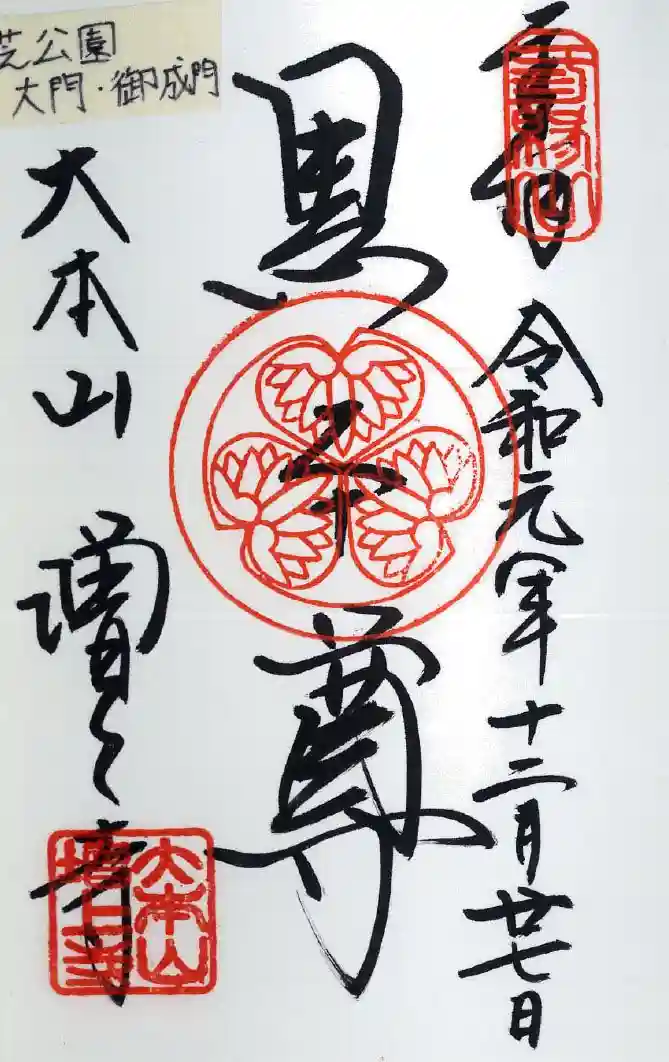 芝公園
大門・御成門
三縁山
令和元年十二月廿七日
黒本尊
大本山 増上寺
大本山
増上寺